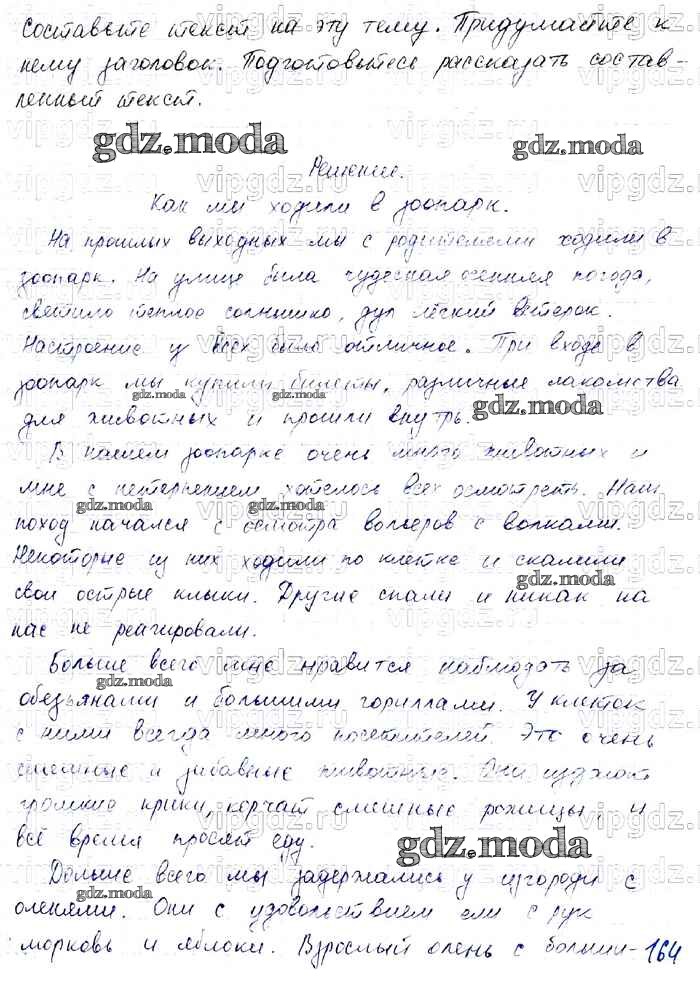 составьте текст на эту тему. Придумайте к
нему заголовок. Подготовьтесь рассказать состав-
ленный текст.
Решение.
Как мы ходили в зоопарк.
На прошлых выходных мы с родителями ходили в
зоопарк. На улице была чудесная осенняя погода,
светило теплое солнышко, дул лёгкий ветерок.
Настроение у всех было отличное. При входе в
зоопарк мы купили билеты, различные лакомства
для животных и прошли внутрь.
В нашем зоопарке очень много животных и
мне с нетерпением хотелось всех осмотреть. Наш
поход начался с осмотра вольеров с волками.
Некоторые из них ходили по клетке и скалили
свои острые клыки. Другие спали и никак на
нас не реагировали.
Больше всего мне нравится наблюдать за
обезьянами и большими гориллами. У клеток
с ними всегда много посетителей. Это очень
смешные и забавные животные. Они издают
громкие крики, корчат смешные рожицы, и
всё время просят еду.
Дольше всего мы задержались у изгороди с
оленями. Они с удовольствием ели с рук
морковь и яблоки. Взрослый олень с больши-
164
gdz.moda
vipgdz.ru